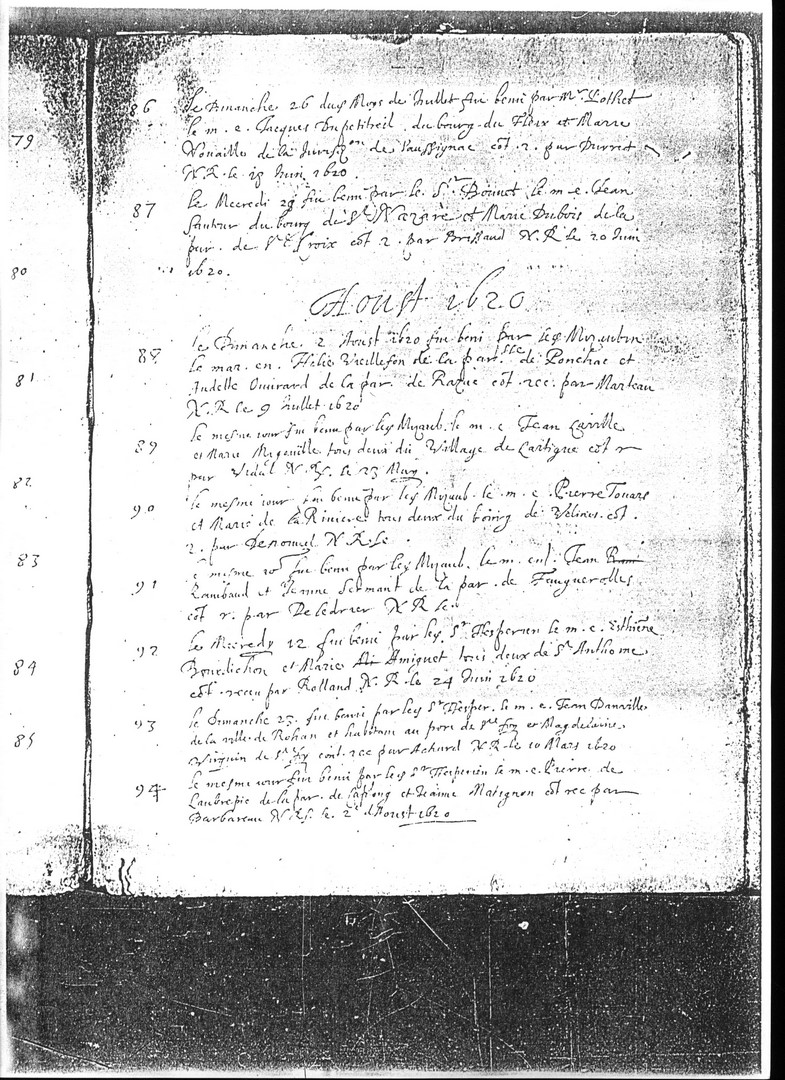 79
80
81
82
83
84
85
86 le Dimanche 26 dud Moys de Juillet fut beni par Mr
le m. e. Jacques Dupetitreil du bourg du Fleix et Marie
Nouaille de la Juris.on de Saussignac cot. 2. par Durret
N. R. le 18 Juin 1620.
87 le Mecredi 29 fut beni par le Sr. Bonnet le m. e. Jean
du bourg de St Nazaire et Marie Dubois de la
par. de Ste Croix cot 2. par Brissaud N. R le 20 Juin
1620.
Aoust 1620
88 le Dimanche 2 Aoust 1620 fut beni par
le mar. en. Helie Vieillefon de la parsse de Ponchac et
Judelle de la par. de cot. rec. par Marteau
N. R le 9 Juillet 1620
89 le mesme iour fut beni par le m. e Jean
et Marie tous deux du Village de Lartigue cot r
par Vidal N. R. le 23 May.
90 le mesme iour fut beni par le m. e. Pierre
et Marie de la Riviere tous deux du bourg de Velines cot.
2. par N. R. le.
91 mesme fut beni par le m. en. Jean
Rambaud et Jeanne Sermant de la par. de Fouguerolles
cot r. par Deledrier N R le.
92 le Mecredy 12 fut beni par Sr Hesperien le m. e. Esthiene
Bonedichon et Marie Amiguet tous deux de St Anthome
cot. receu par Rolland N. R. le 24 Juin 1620
93 le Dimanche 23. fut beni par Sr Hesper. le m. e. Jean Danville
de la ville de Rohan et habitant au port de Ste Foy et Magdelaine
de Ste Foy cont. rec par Achard N R le 10 Mars 1620
94 le mesme iour fut beni par Sr Hesperien le m. e. Pierre de
Laubrepie de la par. de et Jeanne Matignon cot rec par
Barbareau N R. le. 2e d'Aoust 1620